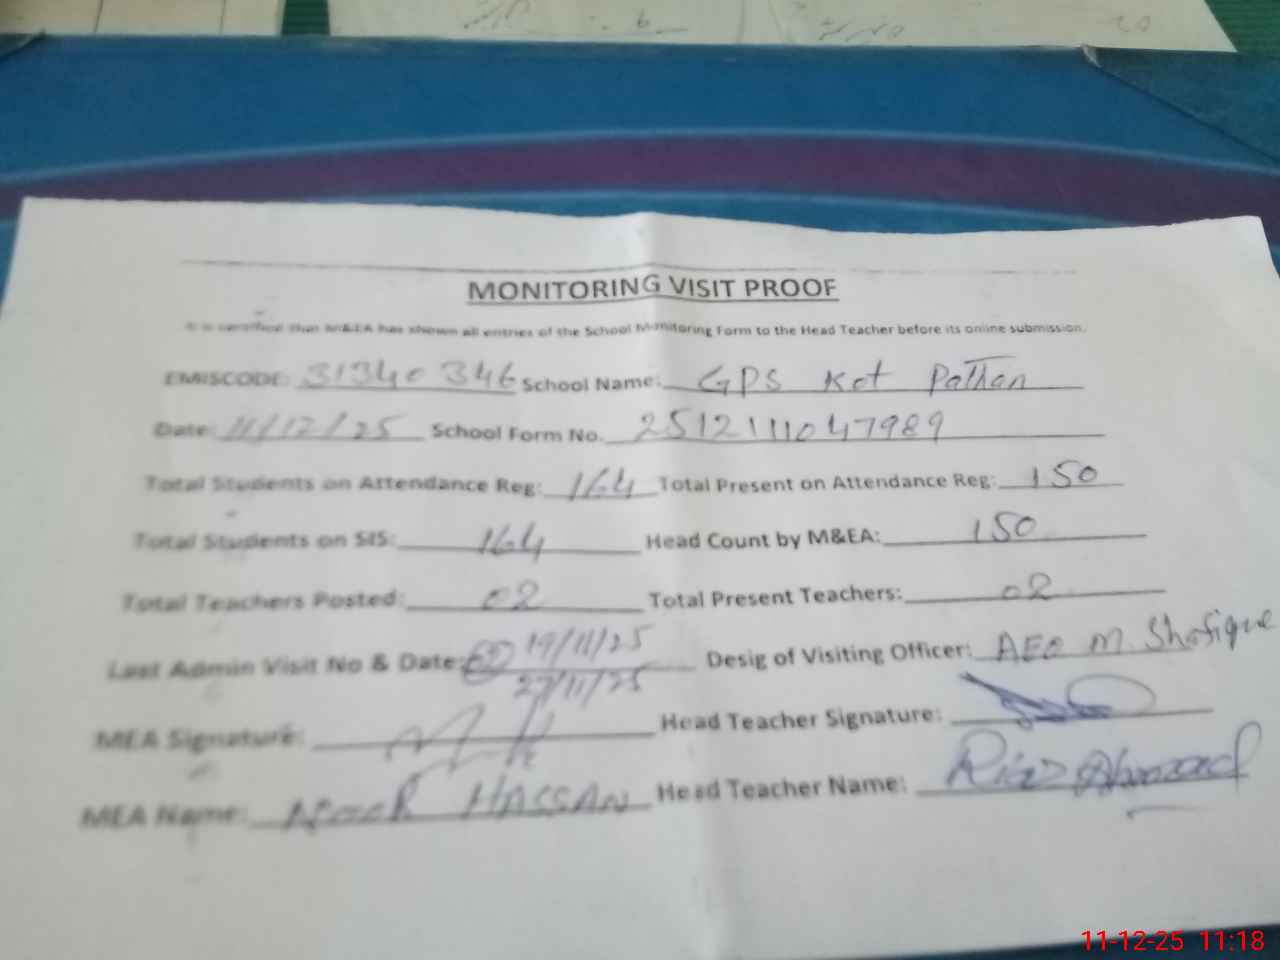 MONITORING VISIT PROOF
It is certified that M&EA has shown all entries of the School Monitoring Form to the Head Teacher before its online submission.
EMISCODE: 31340346 School Name: GPS Kot Pathan
Date: 11/12/25 School Form No. 2512111047989
Total Students on Attendance Reg: 164 Total Present on Attendance Reg: 150
Total Students on SIS: 164 Head Count by M&EA: 150
Total Teachers Posted: 02 Total Present Teachers: 02
Last Admin Visit No & Date: 19/11/25 Desig of Visiting Officer: AEO M. Shafique
27/11/25
MEA Signature: Head Teacher Signature:
MEA Name: HASSAN Head Teacher Name: Riaz Ahmad
11-12-25 11:18